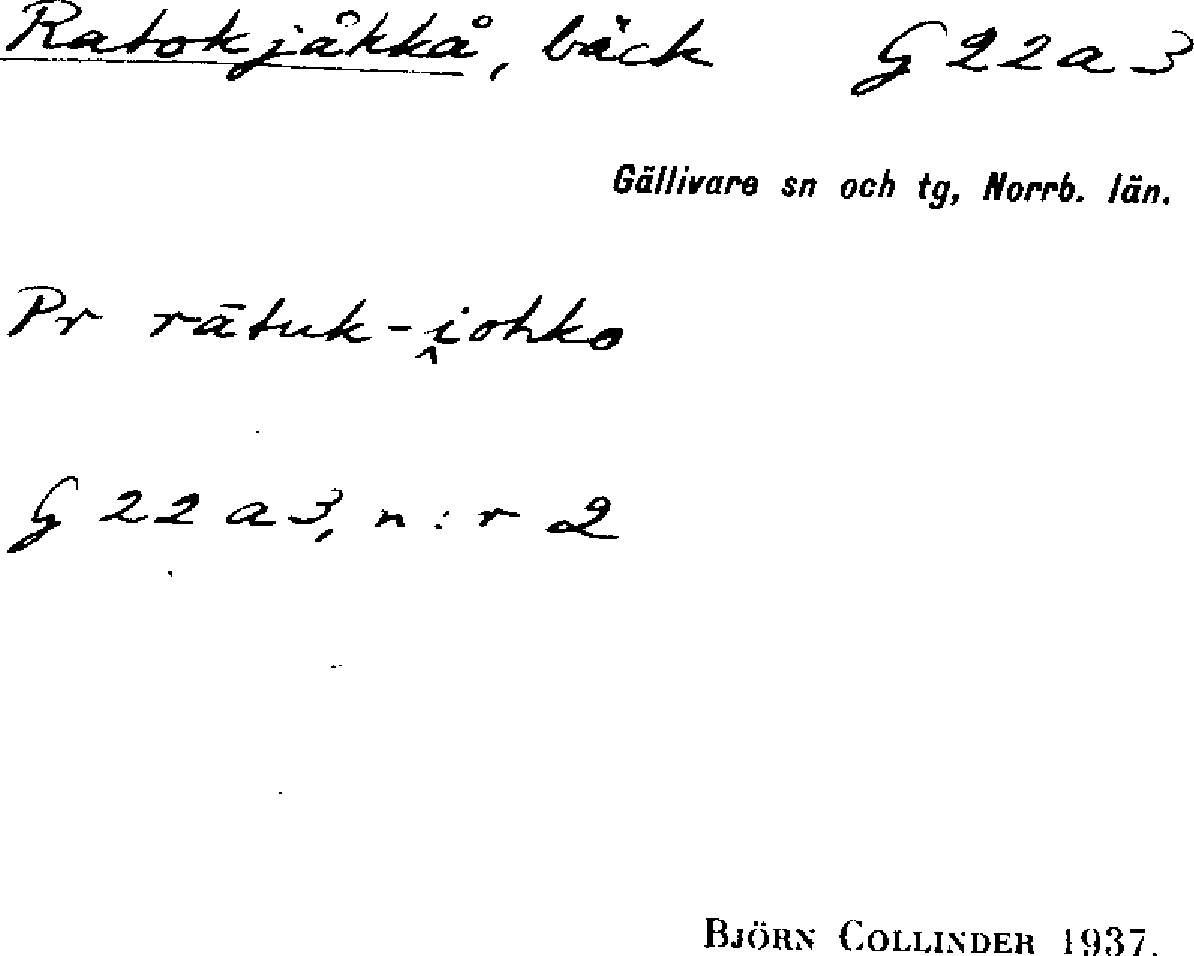 Ratokjåkkå, bäck G 22 a 3
Gällivare sn och tg, Norrb. län.
Pr rātuk-i̭ohko
G 22 a 3, n:r 2
BJÖRN COLLINDER 1937.